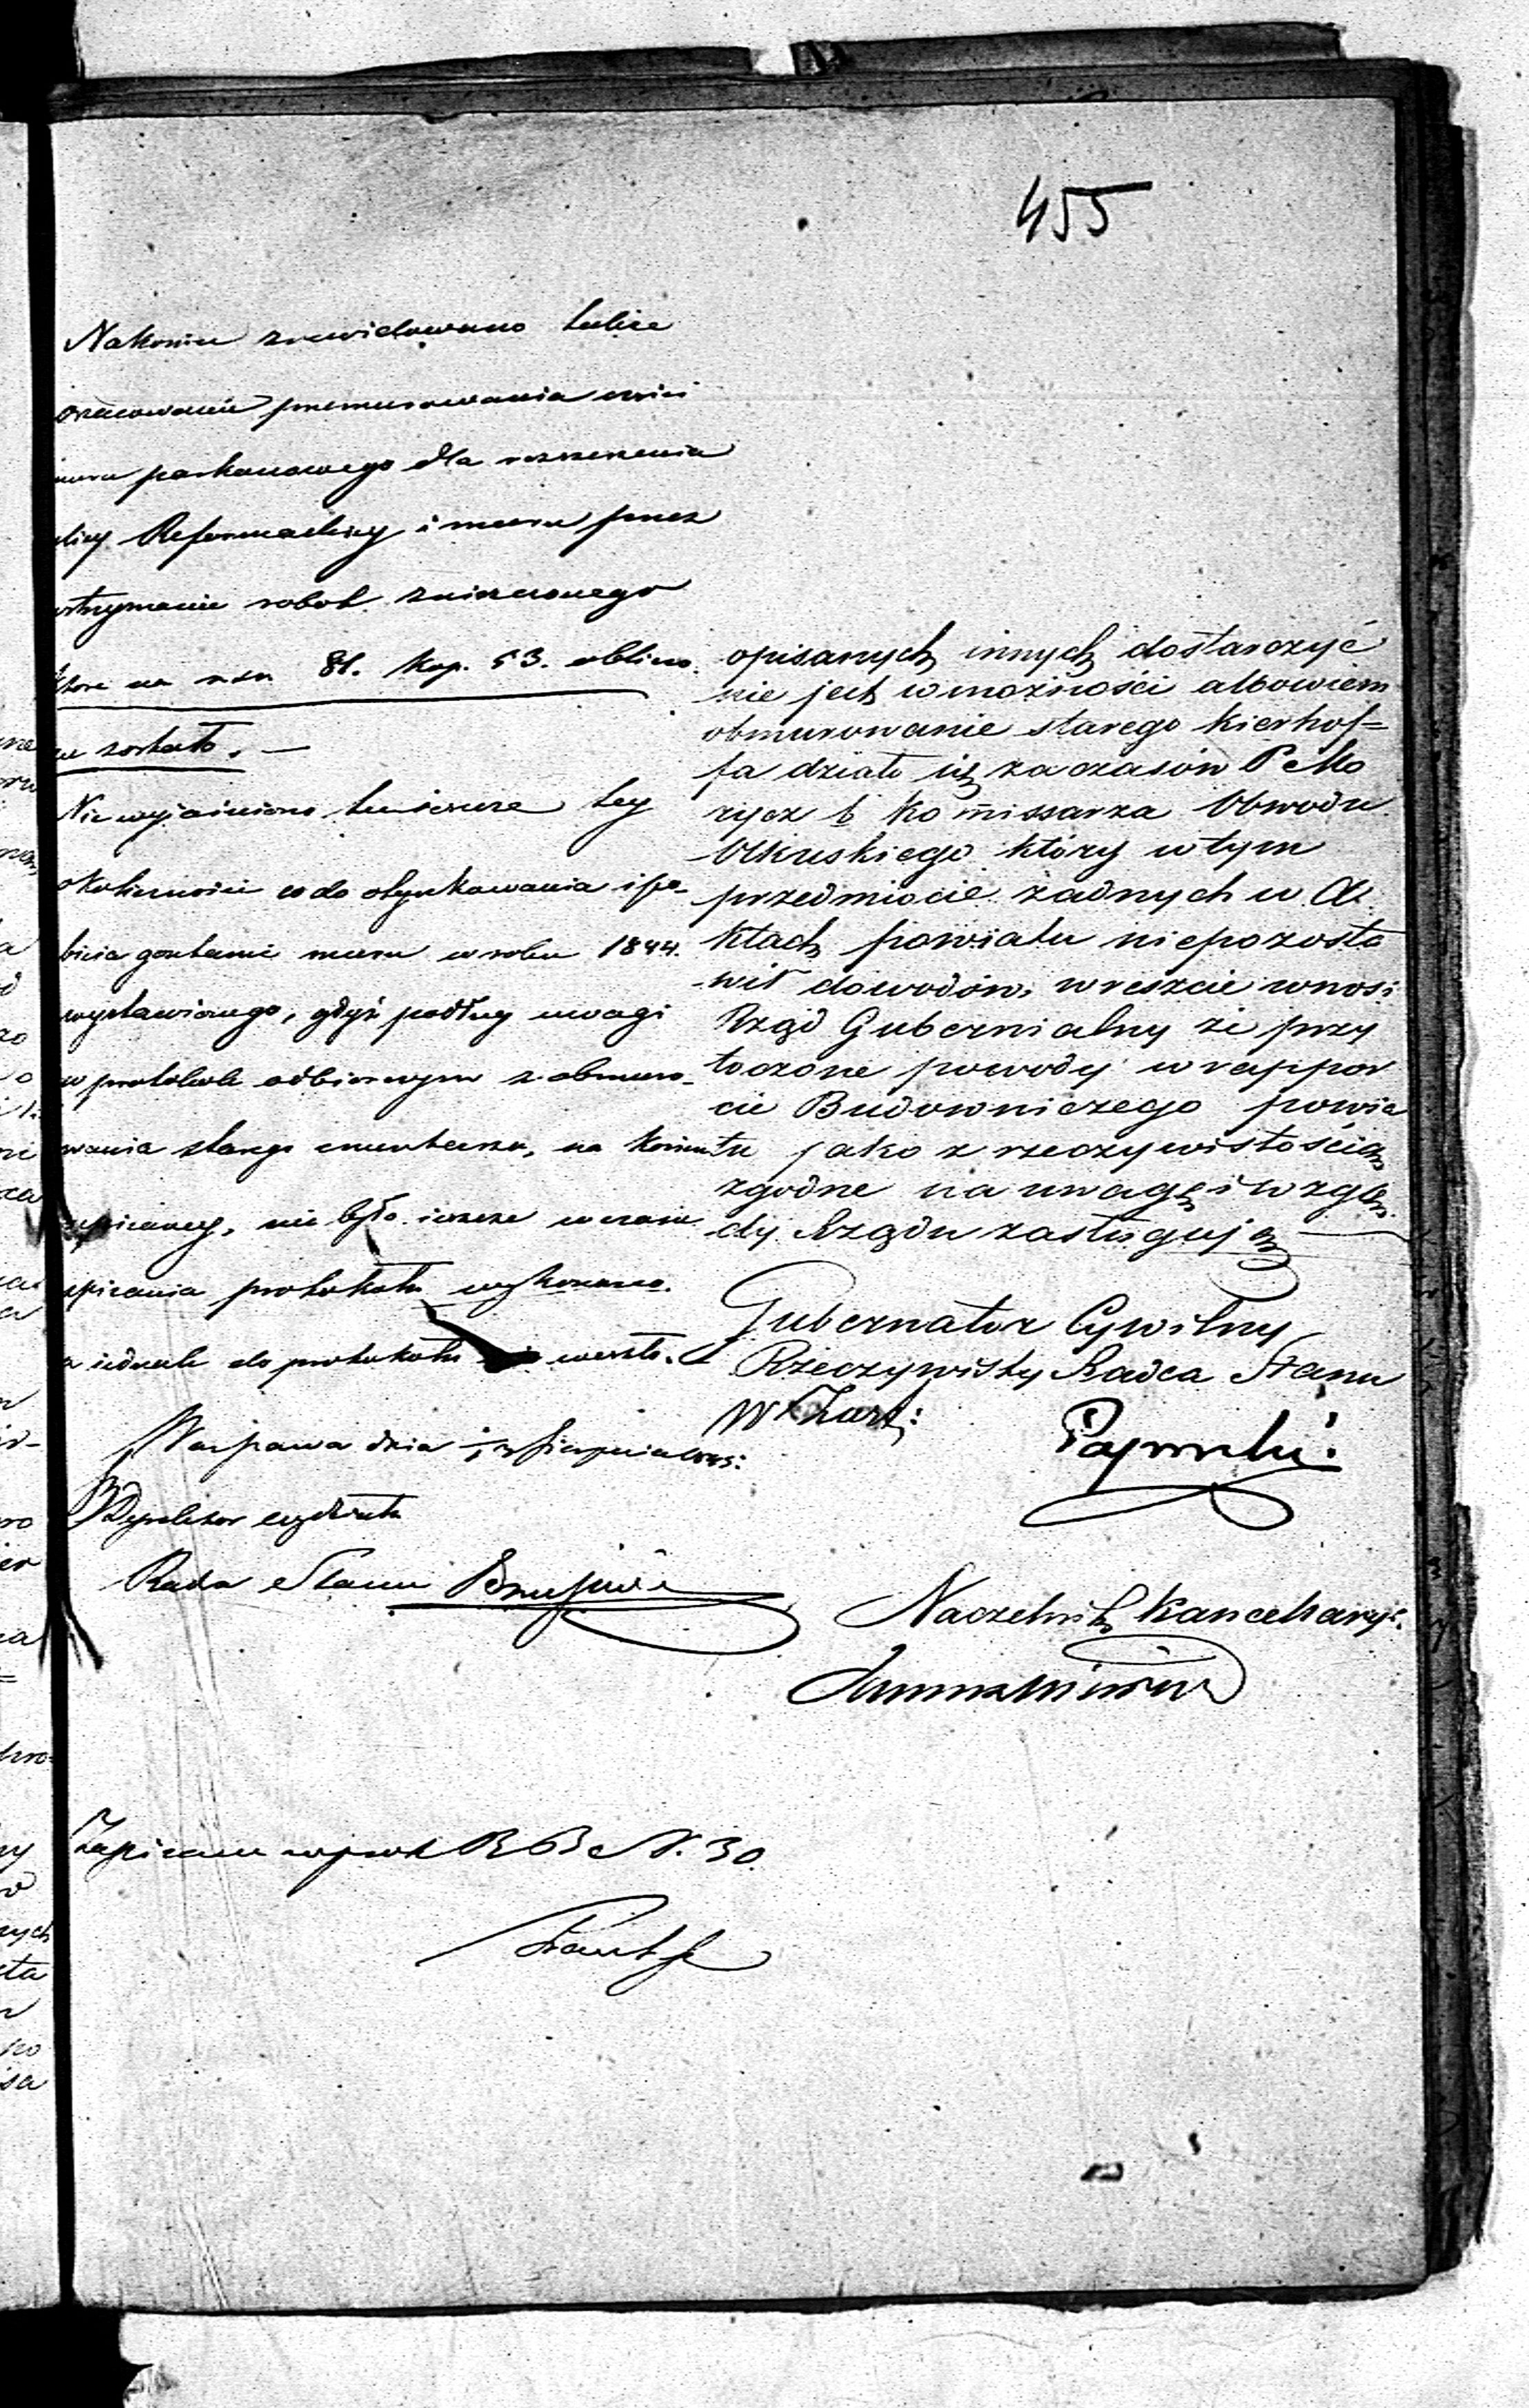 455
Nakoniec zrewidowano także
oszacowanie przemurowania części
muru parkanowego dla rozszerzenia
ulicy Reformackiej i muru przez
wstrzymanie robót zniszczonego
które na rsr. 81. kop. 53. obliczo-
ne zostało. —
Nie wyjaśniono tu jeszcze tej
okoliczności co do otynkowania i po-
bicia gontami muru w roku 1844.
wystawionego, gdyż podług uwagi
w protokole odbiorczym z obmuro-
wania starego cmentarza, na końcu
zapisanej, nie było jeszcze w czasie
spisania protokołu wykonane.
a jednak do protokołu weszło.
Warszawa dnia
Dyrektor wydziału
Radca Stanu
Zapisano w prot. R B N. 30.
opisanych innych dostarczyć
nie jest w możności albowiem
obmurowanie starego Kierhof=
fa działo się za czasów P Mo
rycz b Komissarza Obwodu
Olkuskiego który w tym
przedmiocie żadnych w A
ktach powiatu niepozosta
wił dowodów, wreszcie wnosi
Rząd Gubernialny że przy
toczone powody w rappor
cie Budowniczego powia
tu jako z rzeczywistością
zgodne na uwagę i wzglę
dy Rządu zasługują —
Gubernator Cywilny
Rzeczywisty Radca Stanu
Naczelnik Kancellaryi